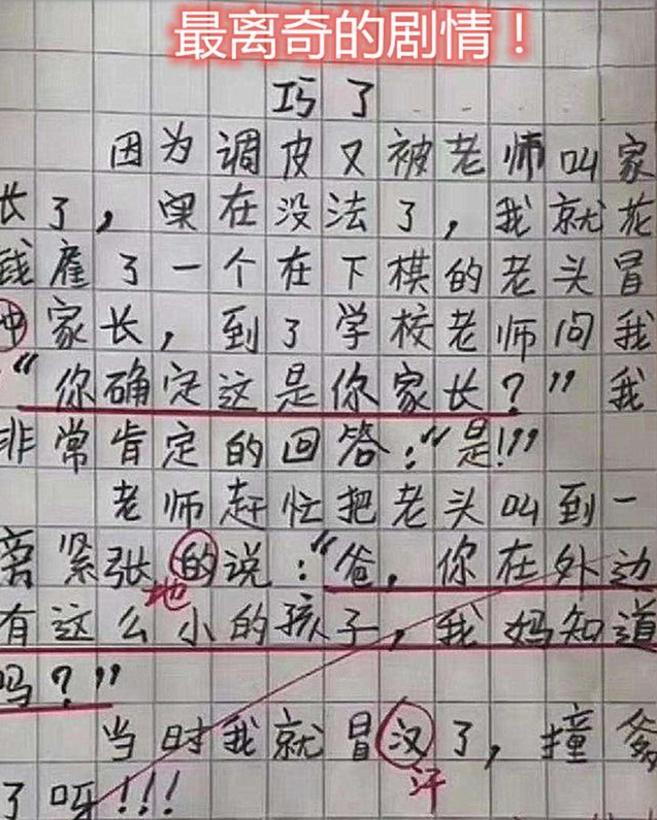 最离奇的剧情！
巧了
因为调皮又被老师叫家
长了，果在没法了，我就花
钱雇了一个在下棋的老头冒
冲家长，到了学校老师问我
“你确定这是你家长？”我
非常肯定的回答：“是！”
老师赶忙把老头叫到一
离紧张的说：“爸，你在外边
地
有这么小的孩子，我妈知道
吗？”
当时我就冒汉了，撞爹
汗
了呀！！！